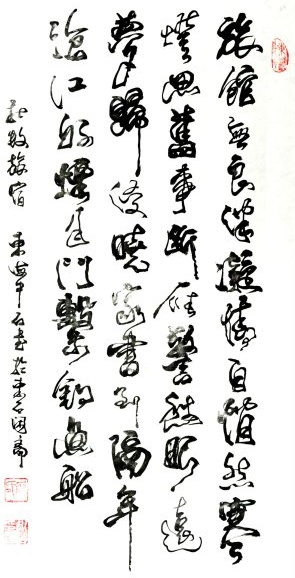 旅館無良伴凝情自悄然寒
燈思舊事斷雁警愁眠遠
夢歸侵曉家書到隔年
滄江好煙月門繫釣魚船
杜牧旅宿 東海 石書於 齋